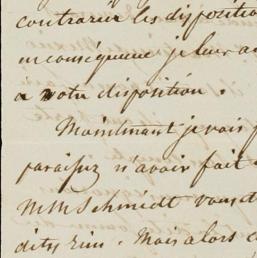 contrarier les dispositio
inconséquence je leur a
à votre disposition.
Maintenant je vois p
paraissez n'avoir fait
MM Schmidt vous d
dites rien. Mais alors c